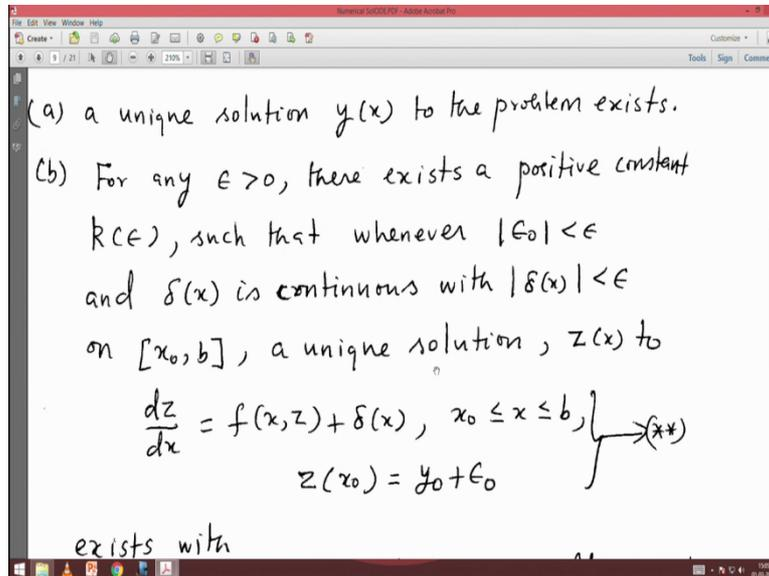 Numerical SolODE.PDF - Adobe Acrobat Pro
File Edit View Window Help
Create
Customize
9 / 21
210%
Tools Sign Comme
(a) a unique solution y(x) to the problem exists.
(b) For any ϵ >0, there exists a positive constant
k(ϵ), such that whenever |ϵ0| < ϵ
and δ(x) is continuous with |δ(x)| < ϵ
on [x0, b], a unique solution, z(x) to
dz/dx = f(x,z) + δ(x), x0 ≤ x ≤ b, →(**)
z(x0) = y0 + ϵ0
exists with